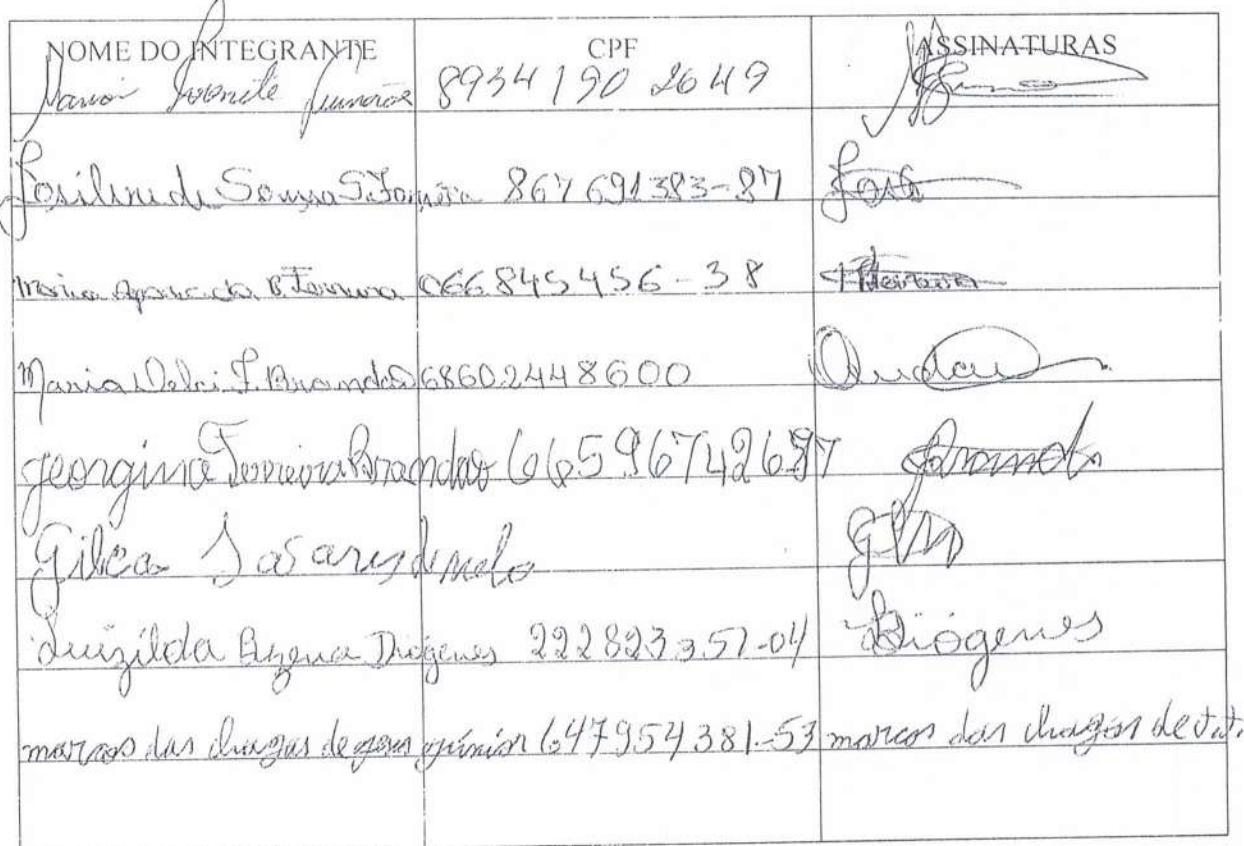 NOME DO INTEGRANTE CPF ASSINATURAS
Maria Ivonete Guimarães 8934190 2649
Josilene de Sousa S. Ferreira 867 691383-87 Josi
Maria Aparecida B Ferreira 066845456-38
Maria Delci F. Brandão 68602448600
georgina Ferreira Brandão 66596742687
Gilca Soares de melo GSM
Luizilda Bezerra Diógenes 222823357-04 Diógenes
marcos das chagas de jesus júnior 647954381-53 marcos das chagas de J.J.